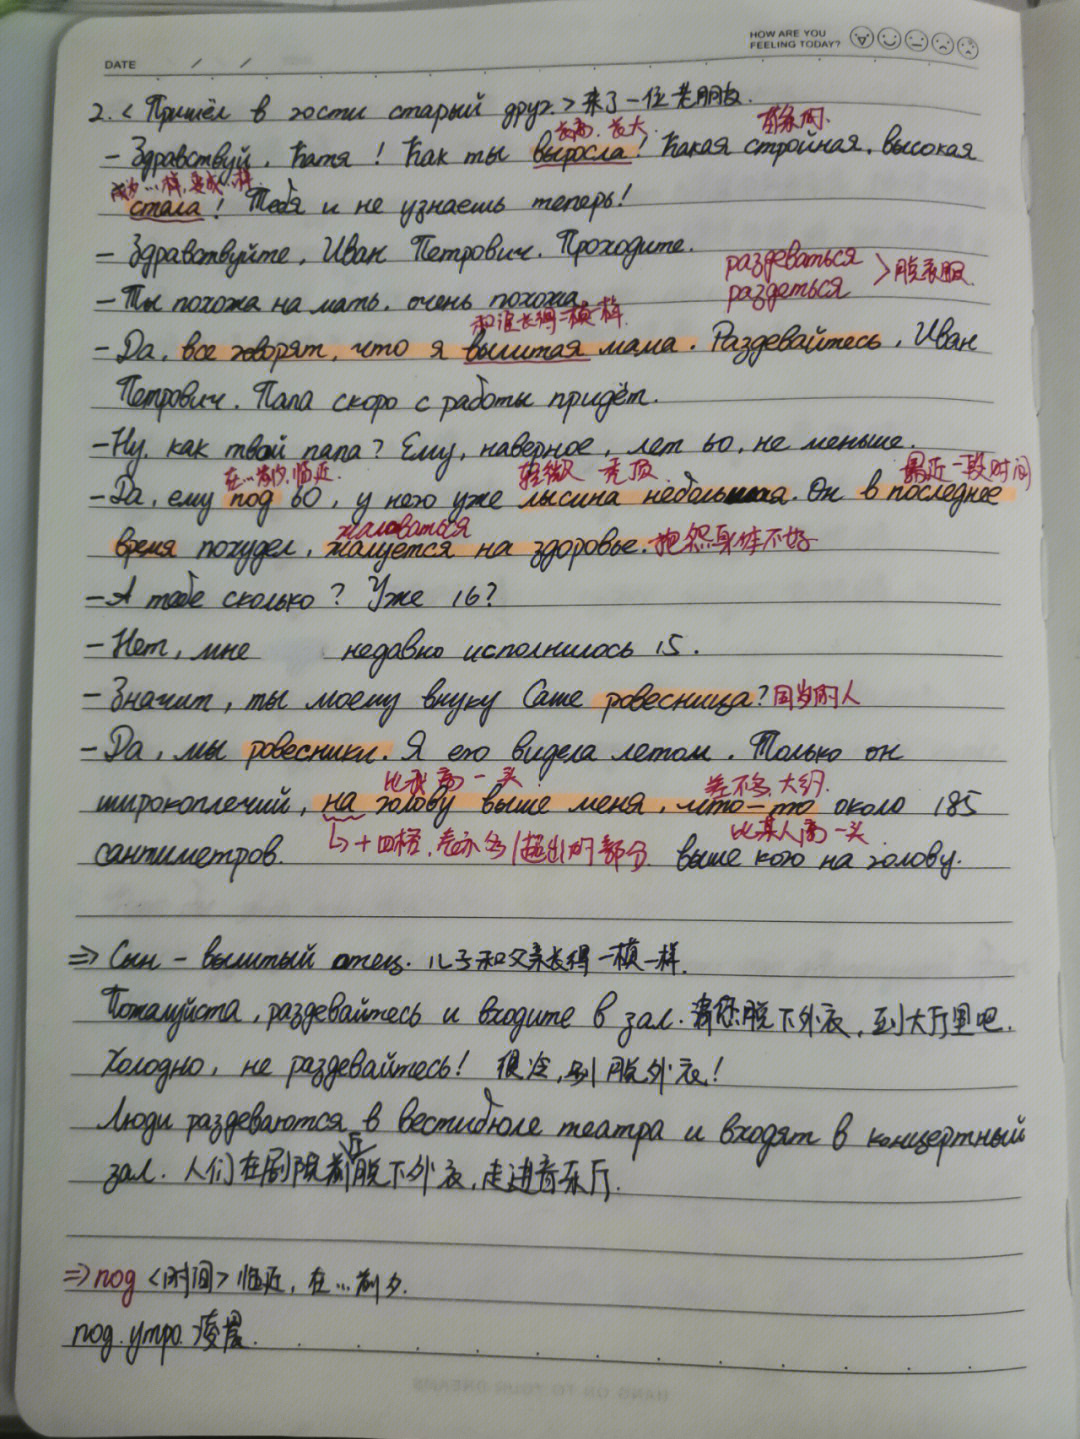 HOW ARE YOU
FEELING TODAY?
DATE / /
2. < Пришёл в гости старый друг. > 来了一位老朋友.
长高、长大 有条的.
- Здравствуй, Катя! Как ты выросла! Какая стройная, высокая
成为…样,变成…样
стала! Тебя и не узнаешь теперь!
- Здравствуйте, Иван Петрович. Проходите.
раздеваться
раздеться > 脱衣服
- Ты похожа на мать, очень похожа
和谁长得一模一样.
- Да, все говорят, что я вылитая мама. Раздевайтесь, Иван
Петрович. Папа скоро с работы придёт.
- Ну, как твой папа? Ему, наверное, лет 60, не меньше.
在…前夕,临近. 轻微 秃顶 最近一段时间
- Да, ему под 60, у него уже лысина небольшая. Он в последнее
жаловаться
время похудел, жалуется на здоровье. 抱怨身体不好
- А тебе сколько? Уже 16?
- Нет, мне недавно исполнилось 15.
- Значит, ты моему внуку Саше ровесница? 同岁的人
- Да, мы ровесники. Я его видела летом. Только он
比我高一头 差不多,大约.
широкоплечий, на голову выше меня, что-то около 185
↳ +四格,表示多/超出的部分. 比某人高一头.
сантиметров. выше кого на голову.
⇒ Сын - вылитый отец. 儿子和父亲长得一模一样.
Пожалуйста, раздевайтесь и входите в зал. 请您脱下外衣,到大厅里吧.
Холодно, не раздевайтесь! 很冷,别脱外衣!
Люди раздеваются в вестибюле театра и входят в концертный
厅
зал. 人们在剧院前脱下外衣,走进音乐厅.
⇒ под <时间> 临近,在…前夕.
под утро. 凌晨.